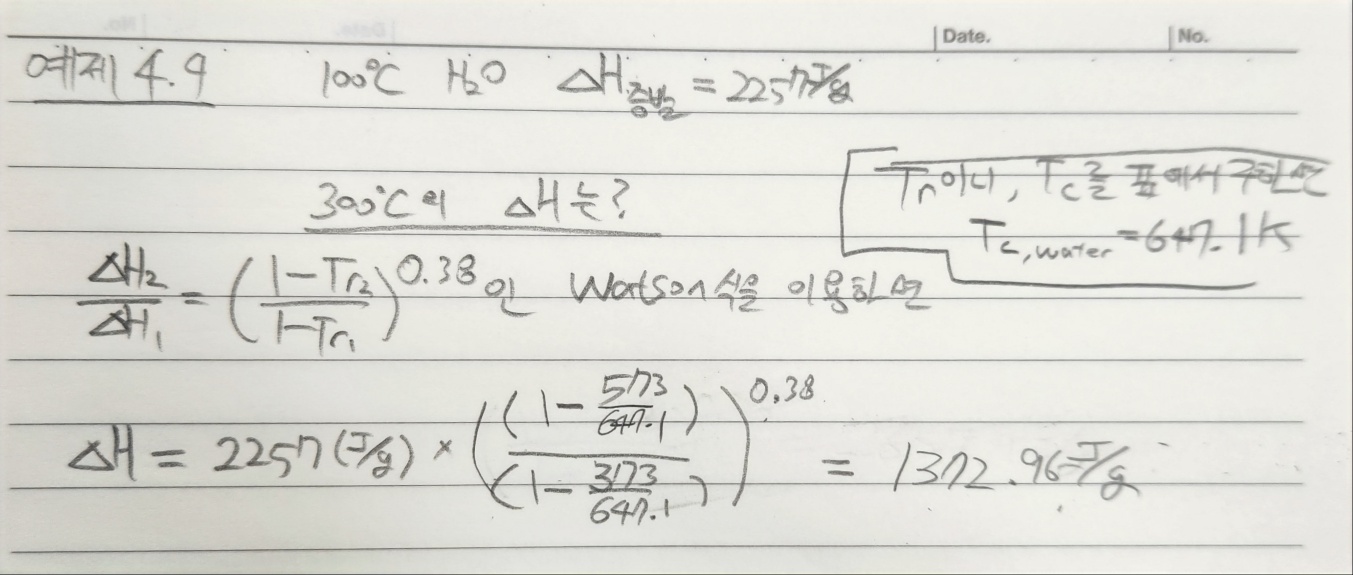 Date. No.
예제 4.9 100°C H₂O ΔH증발 = 2257 J/g
Tr이니, Tc를 표에서 구하면
300°C의 ΔH는?
Tc,water = 647.1K
ΔH₂/ΔH₁ = ((1-Tr₂)/(1-Tr₁))^0.38 인 Watson 식을 이용하면
ΔH = 2257 (J/g) × ((1-573/647.1)/(1-373/647.1))^0.38 = 1372.96 J/g